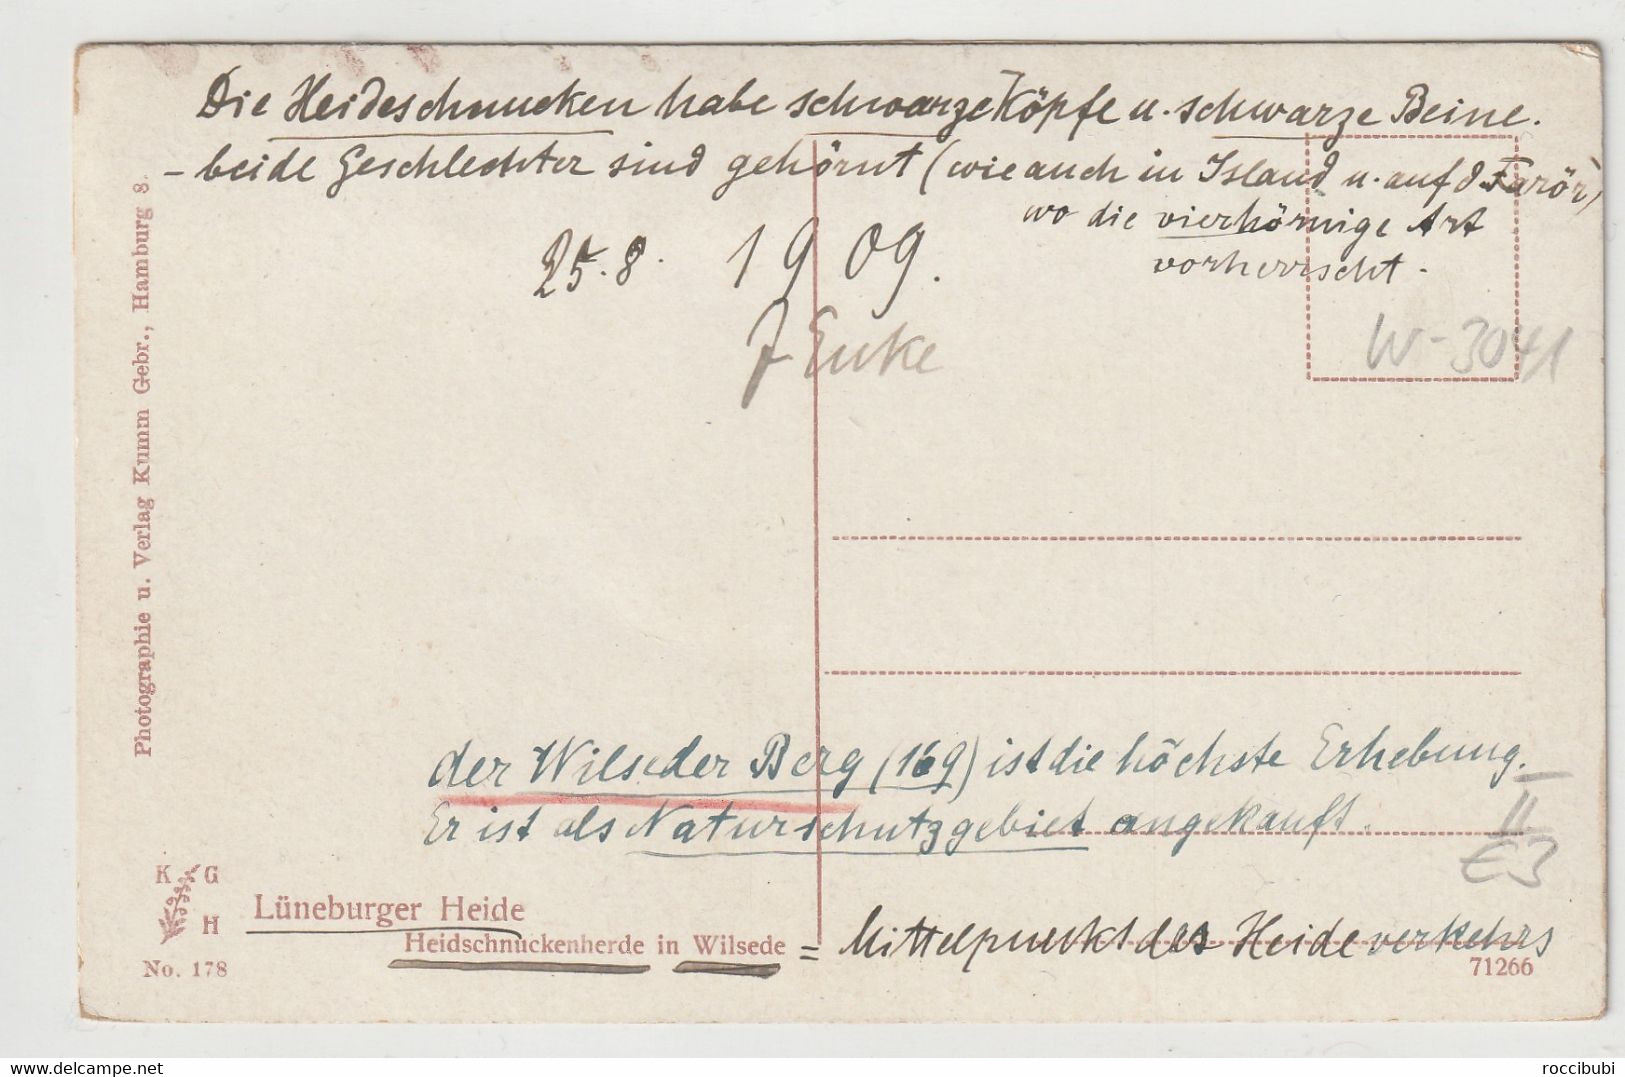 Die Heideschnucken habe schwarze Köpfe u. schwarze Beine.
– beide Geschlechter sind gehörnt (wie auch in Island u. auf d Faröer,
wo die vierhörnige Art
vorherrscht.
25.8. 1909.
Enke
W-3041
Photographie u. Verlag Kumm Gebr., Hamburg 8.
der Wilseder Berg (169) ist die höchste Erhebung.
Er ist als Naturschutzgebiet angekauft.
II
€3
K G
H
Lüneburger Heide
Heidschnuckenherde in Wilsede = Mittelpunkt des Heideverkehrs
No. 178
71266
delcampe.net
roccibubi